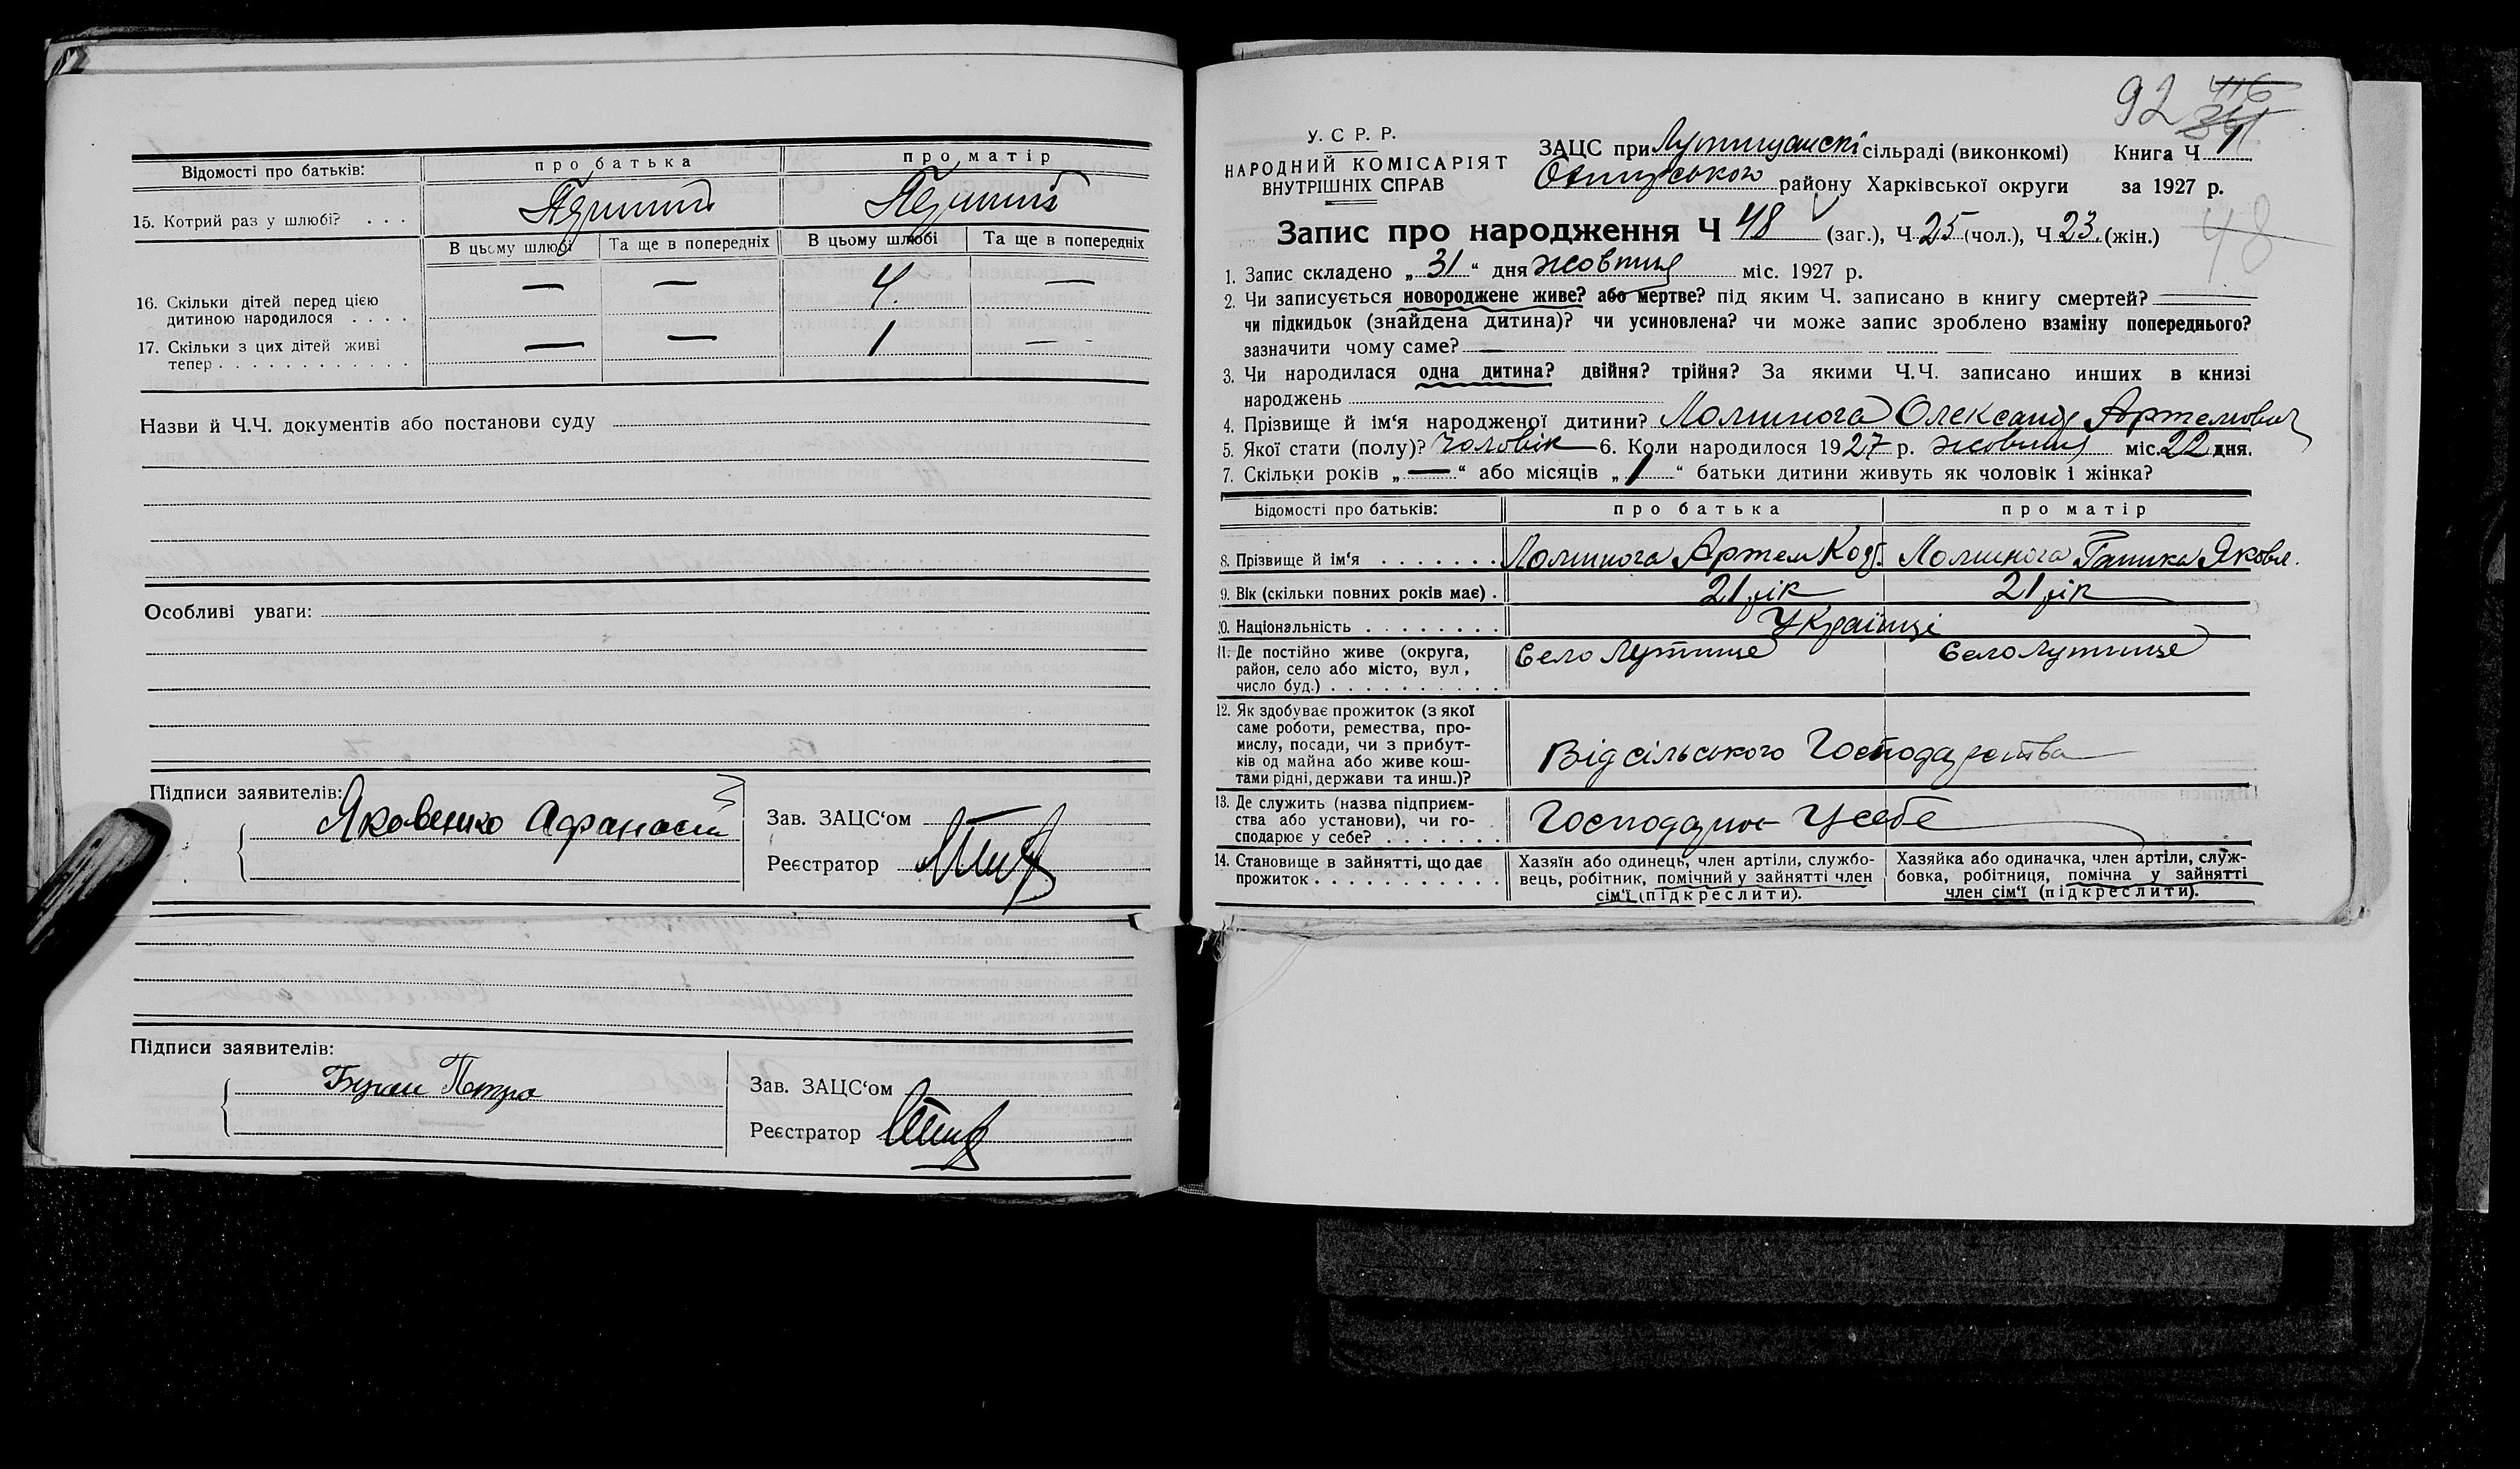 Відомості про батьків: про батька про матір
15. Котрий раз у шлюбі? . . . Перший Перший
В цьому шлюбі Та ще в попередніх В цьому шлюбі Та ще в попередніх
16. Скільки дітей перед цією
дитиною народилося . . . . — — 4. —
17. Скільки з цих дітей живі
тепер . . . . . . . . . . . . — — 1 —
Назви й Ч.Ч. документів або постанови суду
Особливі уваги:
Підписи заявителів:
Яковенко Афанасій
Зав. ЗАЦС‘ом
Реєстратор
Підписи заявителів:
Петро
Зав. ЗАЦС‘ом
Реєстратор
92 416
341
У. С. Р. Р.
НАРОДНИЙ КОМІСАРІЯТ
ВНУТРІШНІХ СПРАВ
ЗАЦС при Лутищанскі сільраді (виконкомі) Книга Ч 1
району Харківської округи за 1927 р.
48
Запис про народження Ч 48 (заг.), Ч 25 (чол.), Ч 23. (жін.)
1. Запис складено „ 31 “ дня жовтня міс. 1927 р.
2. Чи записується новороджене живе? або мертве? під яким Ч. записано в книгу смертей?
чи підкидьок (знайдена дитина)? чи усиновлена? чи може запис зроблено взаміну попереднього?
зазначити чому саме? —
3. Чи народилася одна дитина? двійня? трійня? За якими Ч.Ч. записано инших в книзі
народжень
4. Прізвище й ім‘я народженої дитини? Ломинога Олександр Артемович
5. Якої стати (полу)? чоловік 6. Коли народилося 1927 р. жовтня міс. 22 дня.
7. Скільки років „ — “ або місяців „ 1 “ батьки дитини живуть як чоловік і жінка?
Відомості про батьків: про батька про матір
8. Прізвище й ім‘я . . . . . . . Ломинога Артем Ломинога Ганка Яковл.
9. Вік (скільки повних років має) . 21 рік 21 рік
10. Національність . . . . . . . . Українці
11. Де постійно живе (округа, Село Лутище Село Лутище
район, село або місто, вул.,
число буд.) . . . . . . . . . .
12. Як здобуває прожиток (з якої
саме роботи, ремества, про-
мислу, посади, чи з прибут-
ків од майна або живе кош-
тами рідні, держави та инш.)?
Від сільського Господарства
13. Де служить (назва підприєм-
ства або установи), чи го-
сподарює у себе? . . . . . . .
Господарює У себе
14. Становище в зайнятті, що дає
прожиток . . . . . . . . . . .
Хазяїн або одинець, член артіли, службо-
вець, робітник, помічний у зайнятті член
сім‘ї (підкреслити).
Хазяйка або одиначка, член артіли, служ-
бовка, робітниця, помічна у зайнятті
член сім‘ї (підкреслити).